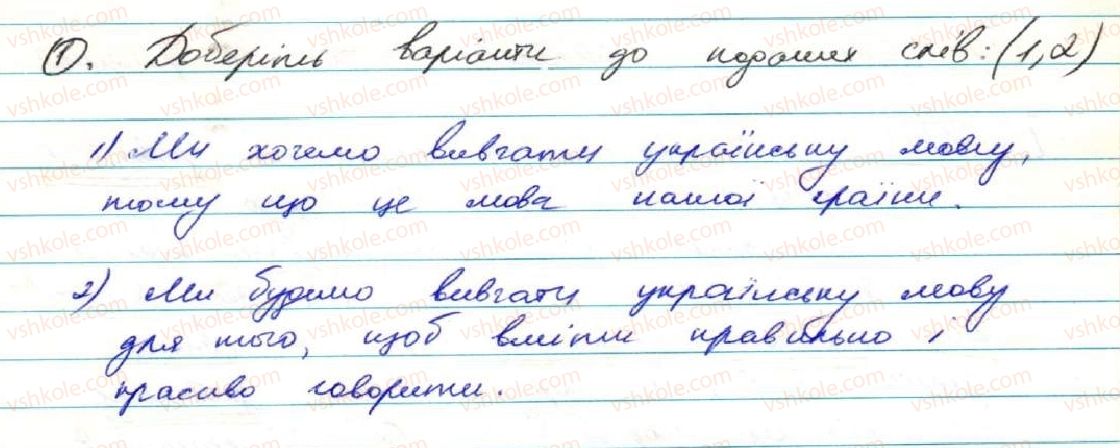 1. Доберіть варіанти до поданих слів: (1,2)
1) Ми хочемо вивчати українську мову,
тому що це мова нашої країни.
2) Ми будемо вивчати українську мову
для того, щоб вміти правильно і
красиво говорити.